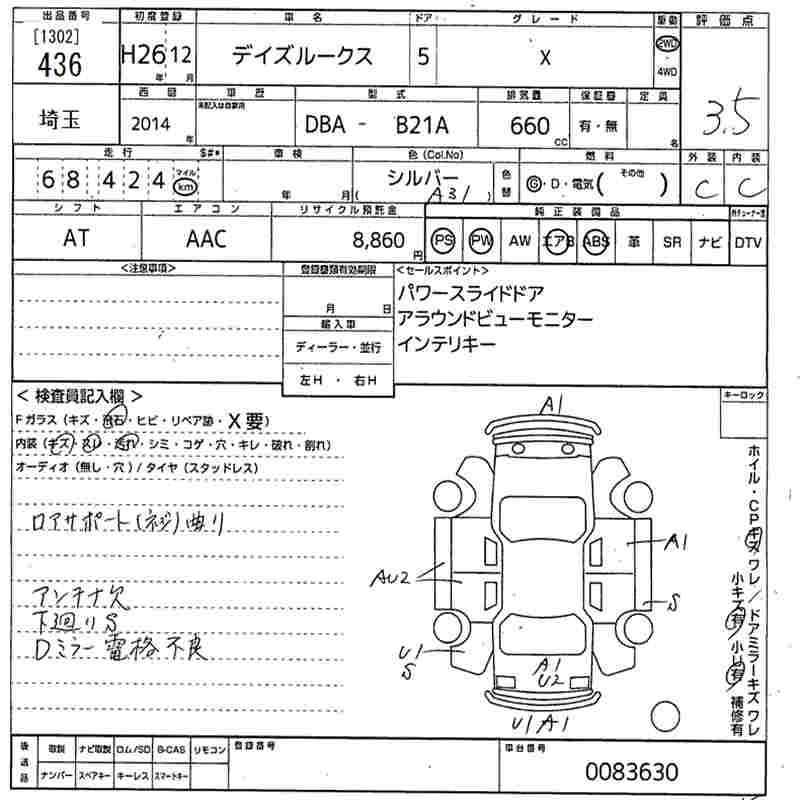 出品番号 初度登録 車名 ドア グレード 駆動 評価点
[1302]
436 H26 12 デイズルークス 5 X 2WD 3.5
年 月 4WD
埼玉 西暦 車歴 型式 排気量 保証書 定員
未記入は自家用
2014 DBA - B21A 660 有・無
年 CC 名
走行 $#* 車検 色(Col.No) 燃料 外装 内装
68424 マイル km 年 月 シルバー (A31) 色替 G・D・電気( その他 ) C C
シフト エアコン リサイクル預託金 純正装備品
AT AAC 8,860 円 PS PW AW エアB ABS 革 SR ナビ DTV
<注意事項> 登録書類有効期限 <セールスポイント>
月 日 パワースライドドア
輸入車 アラウンドビューモニター
ディーラー・並行 インテリキー
左H ・ 右H
<検査員記入欄> キーロック
Fガラス(キズ・飛石・ヒビ・リペア跡・X要)
内装(キズ・スレ・汚れ・シミ・コゲ・穴・キレ・破れ・割れ)
オーディオ(無し・穴)/タイヤ(スタッドレス)
ロアサポート(ネジ)曲り
アンテナ欠
下廻りS
Dミラー電格不良
A1
A1
AU2
S
U1
S
A1
U2
U1 A1
ホイル・CPキズワレ/ドアミラーキズワレ
小キズ有/小U有 補修有
後送品 取説 ナビ取説 ロム/SD B-CAS リモコン 登録番号 車台番号
ナンバー スペアキー キーレス スマートキー 0083630